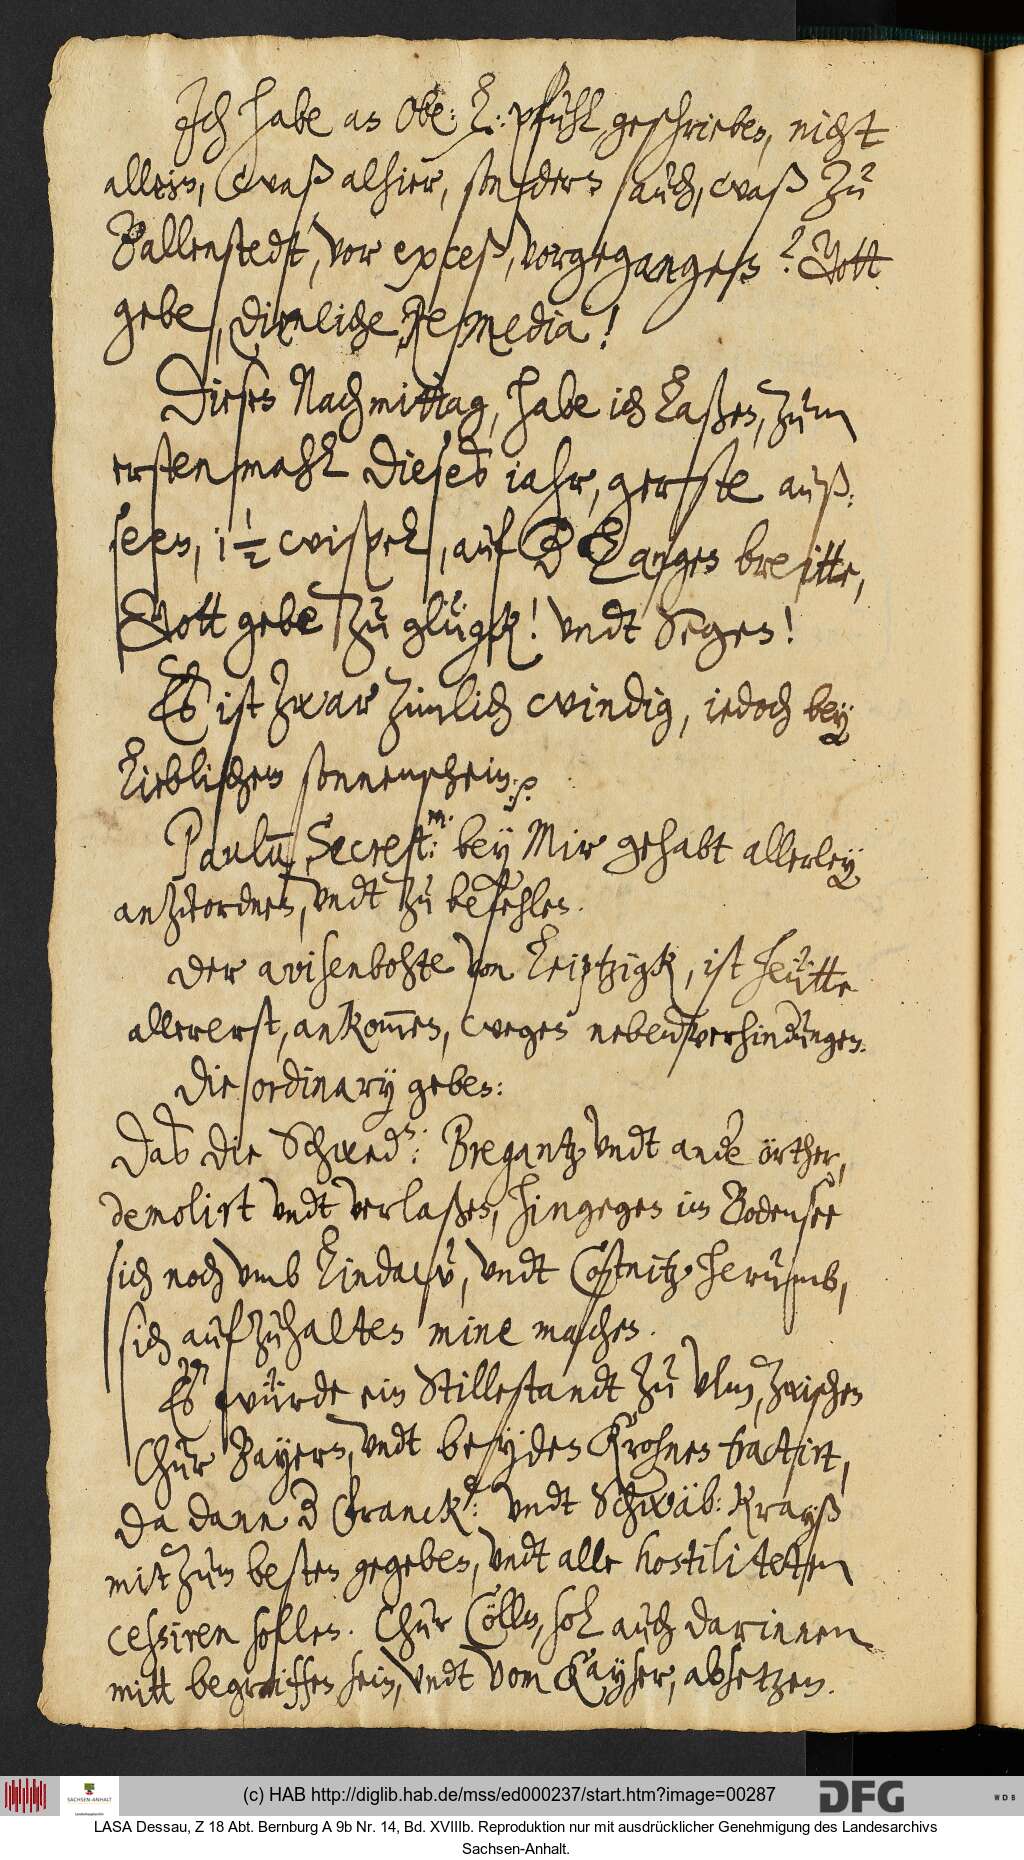 Ich habe an Obr: L: Pfuhl, geschrieben, nicht
allein, waß alhier, sondern auch, waß zu
Ballenstedt, vor exceß, vorgegangen? Gott
gebe, dienliche, Remedia!
Dieses Nachmittag, habe ich laßen, zum
ersten mahl dieses iahr, gerste auß:
seen, 1½ wispel, auf die lange breitte,
Gott gebe zu glügk! vndt Segen!
Es ist zwar zimlich windig, iedoch bey
lieblichem sonnenschein.
Paulus Secret: bey Mir gehabt allerley
anzuordnen, vndt zu befehlen.
Der avisenbohte von Leiptzigk, ist heütte
allererst, ankom̅en, wegen nebenverhinderungen.
Die ordinarÿ geben:
Das die Schwed: Bregantz vndt andere örther,
demolirt vndt verlaßen, hingegen im Bodensee
sich noch vmb Lindaw, vndt Costnitz herumb,
sich aufzuhalten mine machen.
Es würde ein Stillestandt zu Ulm, zwischen
Chur Bayern, vndt beyden Krohnen tractirt,
da dann der Fränck: vndt Schwäb: Krayß
mit zum besten gegeben, vndt alle hostiliteten
cessiren sollen. Chur Cölln, sol auch darinnen
mitt begriffen sein, vndt vom Kayser, absetzen.
SACHSEN-ANHALT
(c) HAB http://diglib.hab.de/mss/ed000237/start.htm?image=00287
DFG
WDB
LASA Dessau, Z 18 Abt. Bernburg A 9b Nr. 14, Bd. XVIIIb. Reproduktion nur mit ausdrücklicher Genehmigung des Landesarchivs
Sachsen-Anhalt.